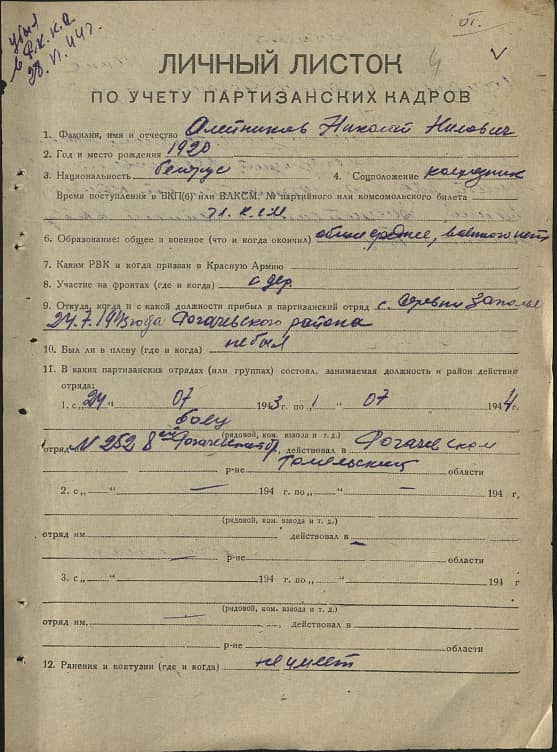 убыл
в Р.К.К.А.
28.VI.44 г.
VI.
4
ЛИЧНЫЙ ЛИСТОК
ПО УЧЕТУ ПАРТИЗАНСКИХ КАДРОВ
1. Фамилия, имя и отчество Алейников Николай Нилович
2. Год и место рождения 1920
3. Национальность белорус 4. Соцположение колхозник
Время поступления в ВКП(б) или ВЛКСМ. № партийного или комсомольского билета
чл. К.С.М.
6. Образование: общее и военное (что и когда окончил) общее среднее, военного нет
7. Каким РВК и когда призван в Красную Армию
8. Участие на фронтах (где и когда) с дер.
9. Откуда, когда и с какой должности прибыл в партизанский отряд с. деревни Заполье
24.7.1943 года Рогачевского района
10. Был ли в плену (где и когда) не был
11. В каких партизанских отрядах (или группах) состоял, занимаемая должность и район действия
отряда:
1. с „24“ 07 1943 г. по „1“ 07 1944 г.
боец
(рядовой, ком. взвода и т. д.)
отряд № 252 8ой Рогачевской бр, действовал в Рогачевском
р-не Гомельской области
2. с „ “ — 194 г. по „ “ — 194 г,
(рядовой, ком. взвода и т. д.)
отряд им. — действовал в —
р-не — области
3. с „ “ 194 г. по „ “ 194 г
(рядовой, ком. взвода и т. д.)
отряд им. —, действовал в
р-не — области
12. Ранения и контузии (где и когда) не имеет